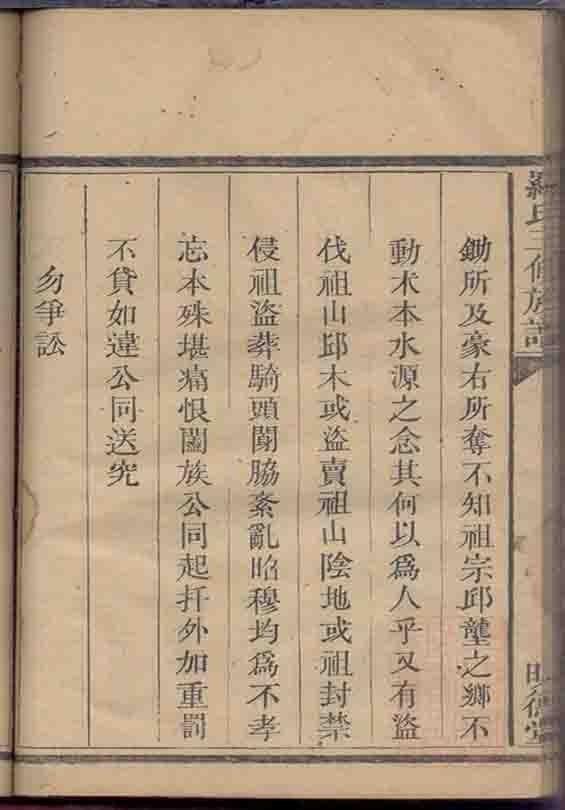 鋤所及豪右所奪不知祖宗邱壟之鄉不
動木本水源之念其何以爲人乎又有盜
伐祖山邱木或盜賣祖山陰地或祖封禁
侵祖盜葬騎頭鬭脇紊亂昭穆均爲不孝
忘本殊堪痛恨闔族公同起扦外加重罰
不貸如違公同送究
勿爭訟
羅氏三修族譜
明德堂